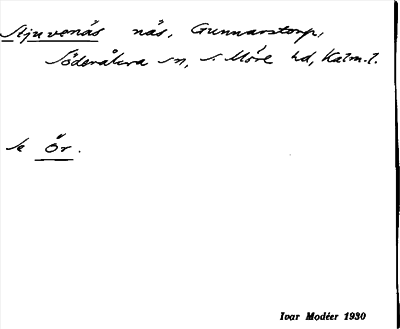 Stjuvenäs näs, Gunnarstorp,
Söderåkra sn, s. Möre hd, Kalm. l.
se Ör.
Ivar Modéer 1930